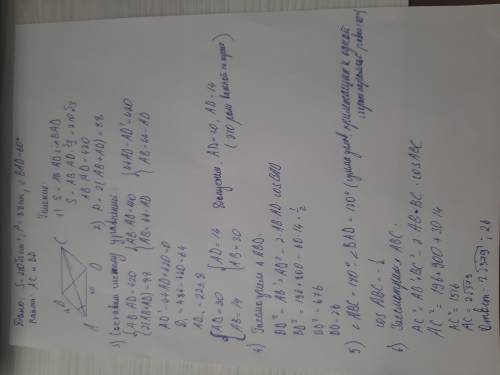 Дано: S=210√3 см², P=88 см, ∠BAD=60°
Найти: AC и BD
B C
A D
O
Решение:
1) S = AB·AD·sin BAD
S = AB·AD·√3/2 = 210√3
AB·AD = 420
2) P = 2(AB+AD) = 88
3) Составим систему уравнений:
{AB·AD=420 {AB·AD=420 {44AD-AD²=420
{2(AB+AD)=88 {AB=44-AD {AB=44-AD
AD²-44AD+420=0
D₁=484-420=64
AD=22±8
{AD=30 {AD=14
{AB=14 {AB=30
Допустим, AD=30, AB=14
4) Рассмотрим △ ABD.
BD² = AB²+AD²-2·AB·AD·cos BAD
BD² = 196+900-60·14·1/2
BD² = 676
BD=26
5) ∠ABC = 180°-∠BAD = 120° (сумма углов прилежащих к одной
стороне параллелограмма равна 180°)
cos ABC = -1/2
6) Рассмотрим △ ABC:
AC² = AB²+BC²-2·AB·BC·cos ABC
AC² = 196+900+30·14
AC² = 1516
AC = 2√379
Ответ: 2√379; 26